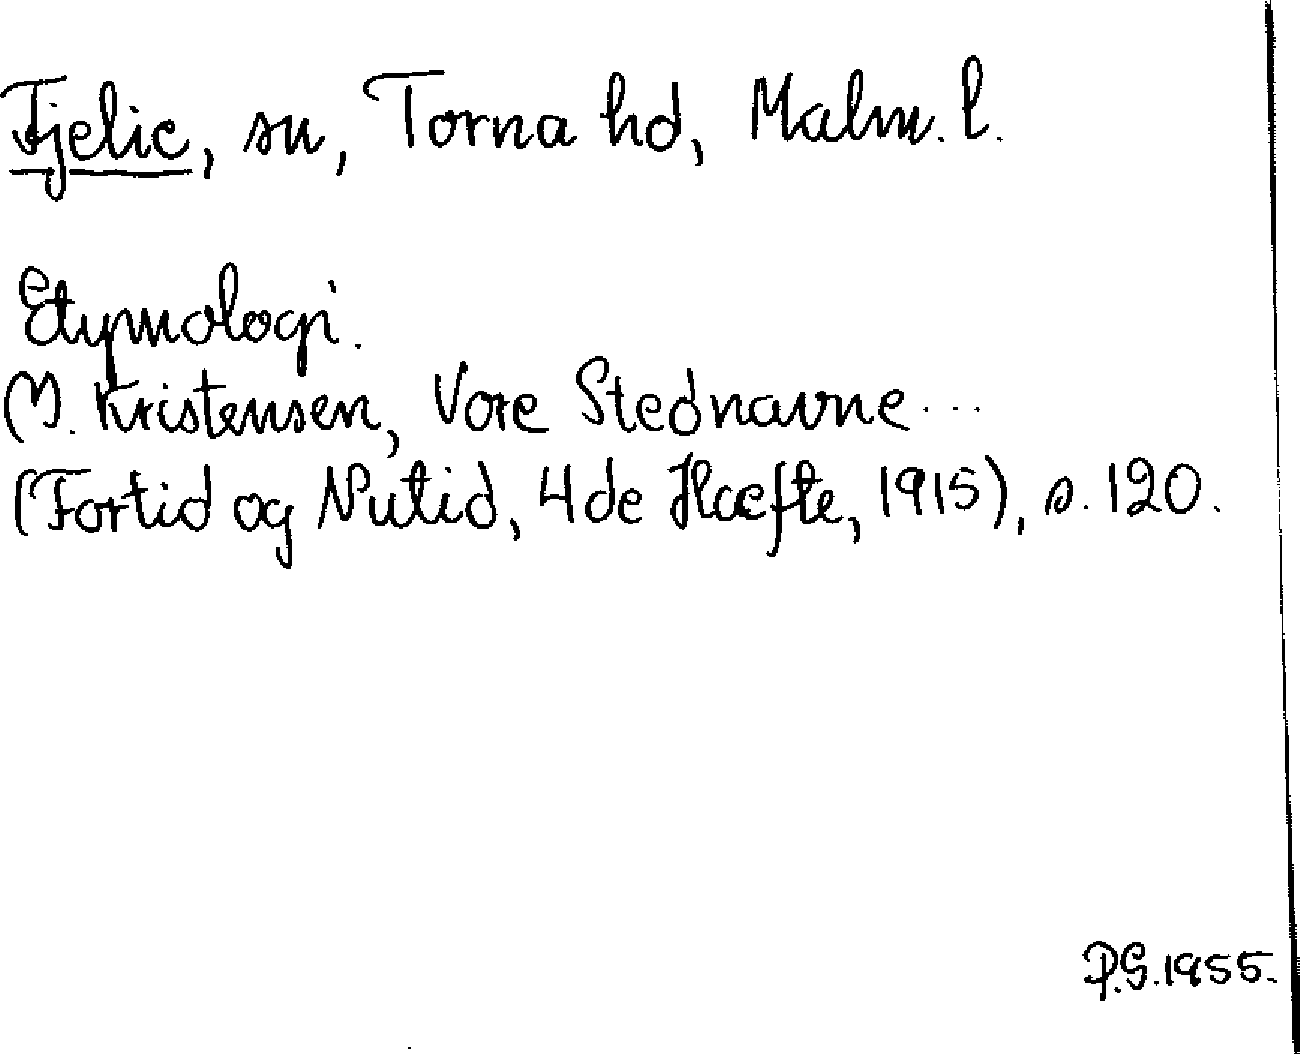 Fjelie, sn, Torna hd, Malm. l.
Etymologi.
M. Kristensen, Vore Stednavne...
(Fortid og Nutid, 4de Hæfte, 1915), s. 120.
P.G. 1955.